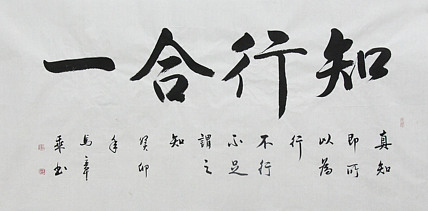 知行合一
真知
即所
以為
行
不行
不足
謂之
知
癸卯
年
馬章
乘书